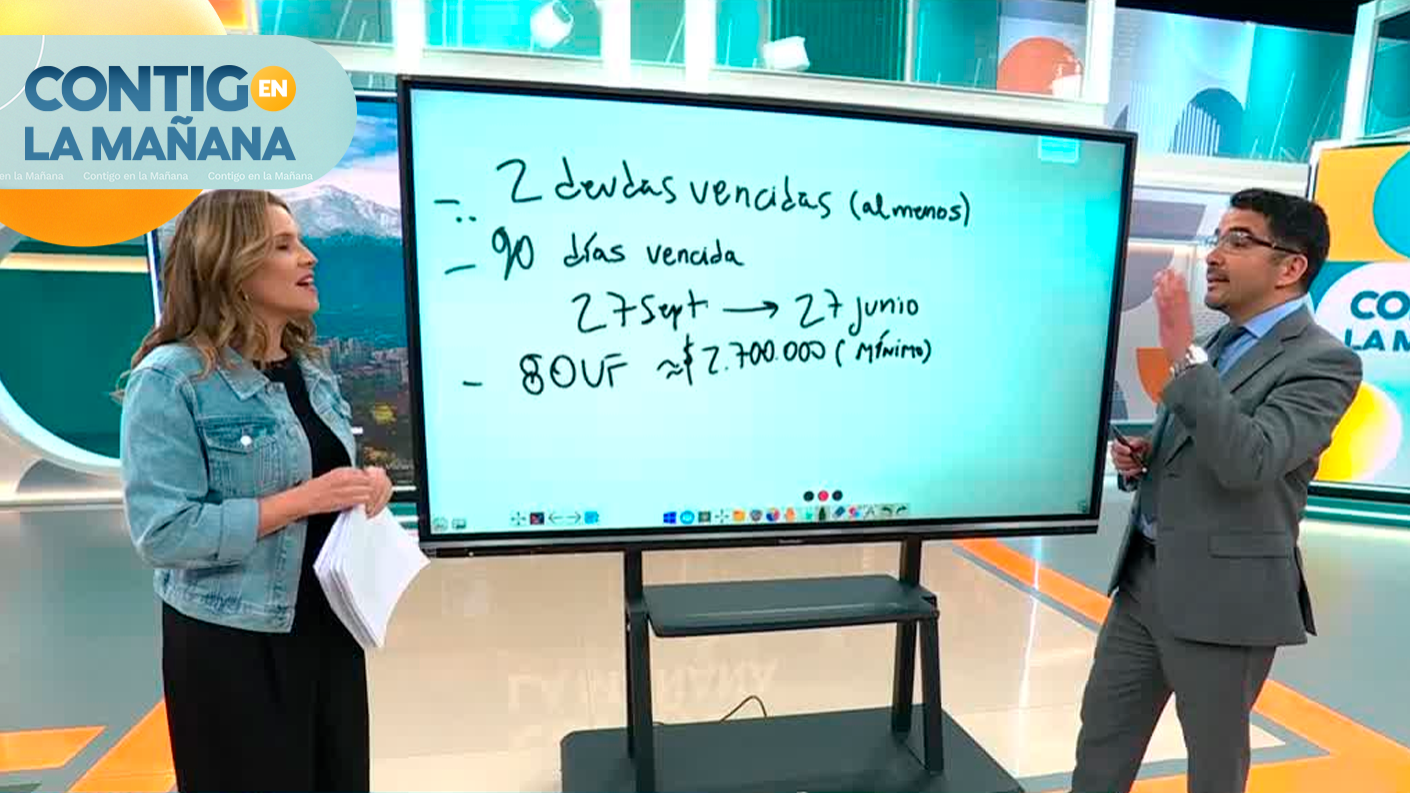 CONTIGO EN
LA MAÑANA
en la Mañana Contigo en la Mañana Contigo en la Mañana
- 2 deudas vencidas (al menos)
- 90 días vencida
27 Sept. → 27 junio
- 80 UF ≈ $2.700.000 (MÍNIMO)
CO
LA M
LA MAÑANA